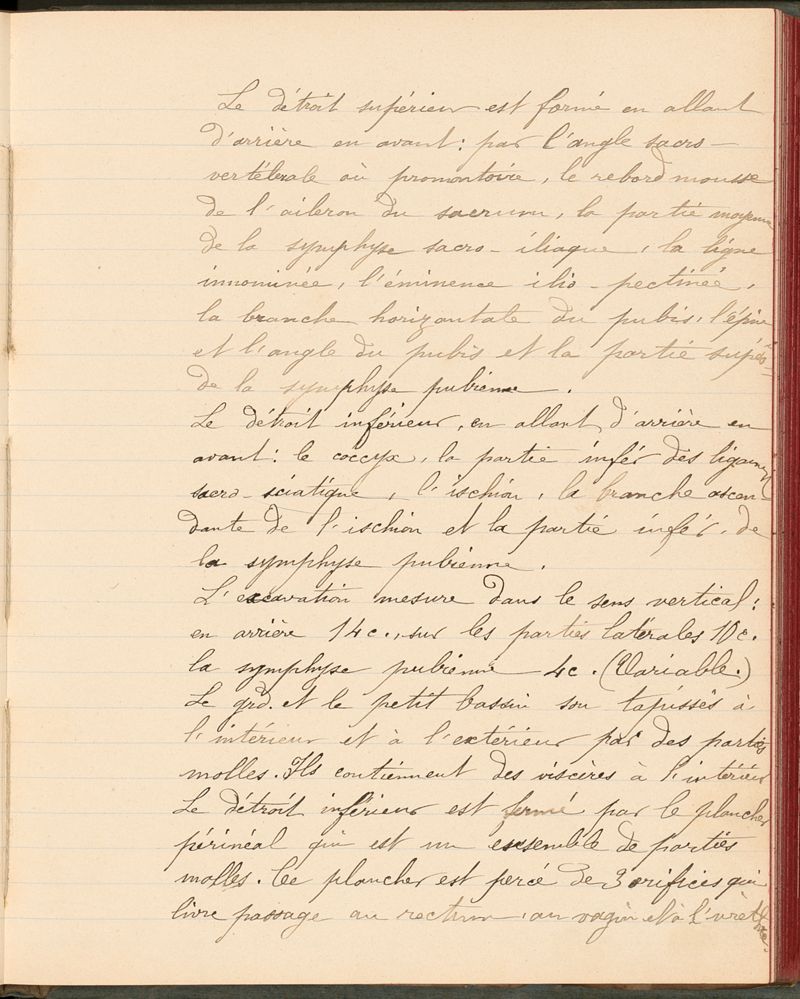 Le détroit supérieur est formé en allant
d'arrière en avant : par l'angle sacro-
vertébrale où promontoire, le rebord mousse
de l'aileron du sacrum, la partie moyenne
de la symphyse sacro-iliaque, la ligne
innominée, l'éminence ilio-pectinée,
la branche horizontale du pubis, l'épine
et l'angle du pubis et la partie supér.
de la symphyse pubienne.
Le détroit inférieur, en allant d'arrière en
avant : le coccyx, la partie infér des ligamen
sacro-sciatique, l'ischion, la branche ascen-
dante de l'ischion et la partie infér. de
la symphyse pubienne.
L'excavation mesure dans le sens vertical :
en arrière 14c., sur les parties latérales 10c.
la symphyse pubienne 4c. (Variable.)
Le grd. et le petit bassin son tapissés à
l'intérieur et à l'extérieur par des parties
molles. Ils contiennent des viscères à l'intérieur
Le détroit inférieur est fermé par le plancher
périnéal qui est un ensemble de parties
molles. Ce plancher est percé de 3 orifices qui
livre passage au rectum, au vagin et à l'urèthre.